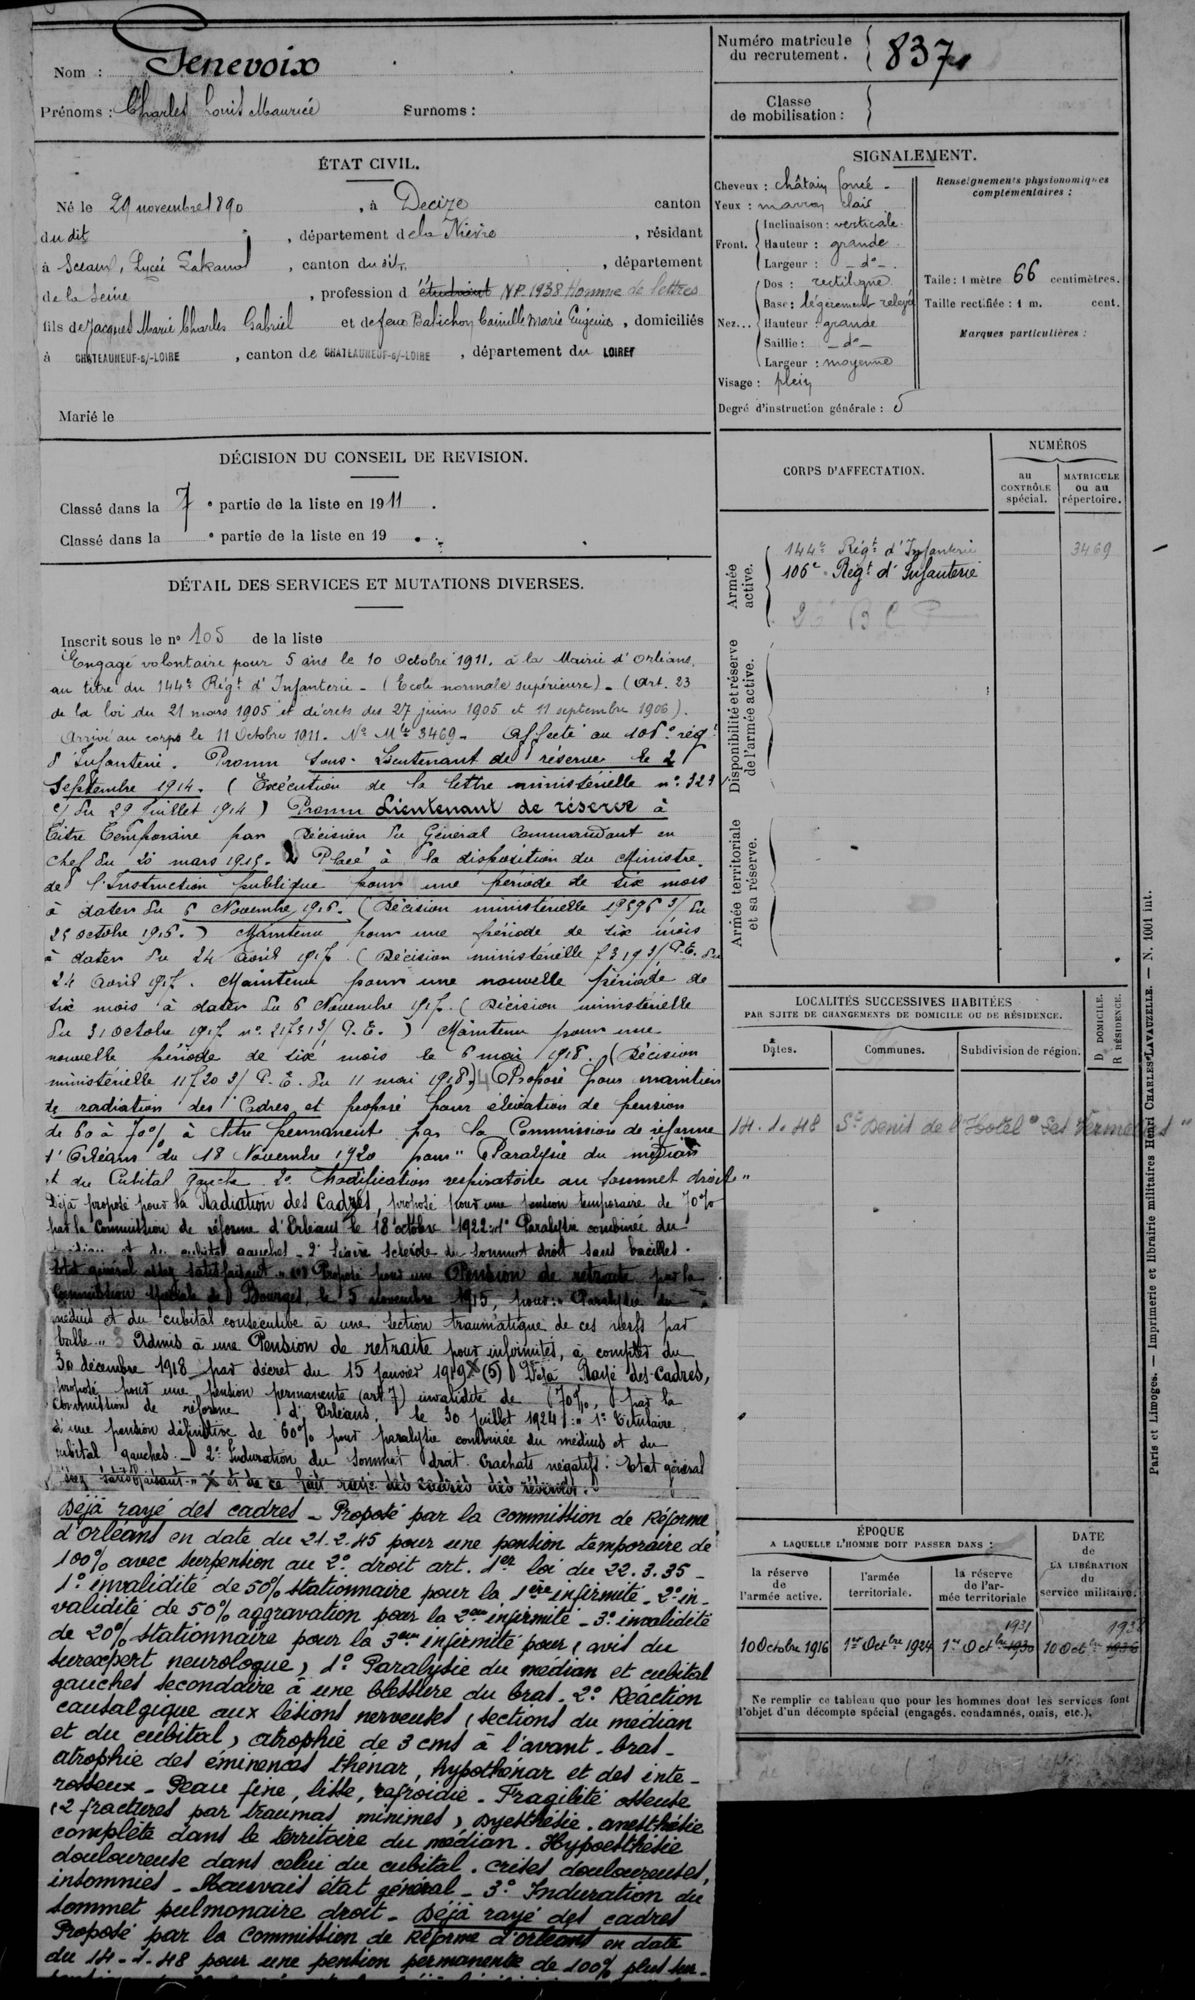 Nom : Genevoix
Prénoms : Charles Louis Maurice Surnoms :
Numéro matricule du recutement. 837
Classe de mobilisation :
ÉTAT CIVIL.
Né le 29 novembre 1890, à Decize canton
du dit, département de la Nièvre, résidant
à Sceaux, Lycée Lakanal, canton du dit, département
de la Seine, profession d'étudiant NP. 1938 Homme de lettres
fils de Jacques Marie Charles Gabriel et de feue Balichon Camille Marie Eugénie, domiciliés
à CHATEAUNEUF-s/-LOIRE, canton de CHATEAUNEUF-s/-LOIRE, département du LOIRET
Marié le
SIGNALEMENT.
Cheveux : châtain foncé -
Yeux : marron clair
Front. Inclinaison : verticale.
Hauteur : grande.
Largeur : - do -.
Nez... Dos : rectiligne
Base : légèrement relevé
Hauteur : grande
Saillie : - do -
Largeur : moyenne
Visage : plein
Degré d'instruction générale : 5
Renseignements physionomiques
complémentaires :
Taille : 1 mètre 66 centimètres.
Taille rectifiée : 1 m. cent.
Marques particulières :
DÉCISION DU CONSEIL DE REVISION.
Classé dans la 7e partie de la liste en 1911.
Classé dans la e partie de la liste en 19 .
DÉTAIL DES SERVICES ET MUTATIONS DIVERSES.
Inscrit sous le no 105 de la liste
Engagé volontaire pour 5 ans le 10 Octobre 1911. à la Mairie d'Orléans.
au titre du 144e Régt d'Infanterie - (Ecole normale supérieure) - (Art. 23
de la loi du 21 mars 1905 et décrets des 27 juin 1905 et 11 septembre 1906).
Arrivé au corps le 11 Octobre 1911. No Mle 3469 - Affecté au 106e régt
d'Infanterie. Promu Sous-Lieutenant de réserve le 2
Septembre 1914. (Exécution de la lettre ministérielle no 323
du 29 Juillet 1914) Promu Lieutenant de réserve à
titre temporaire par décision du Général Commandant en
chef du 20 mars 1915. Placé à la disposition du Ministre
de l'Instruction publique pour une période de six mois
à dater du 6 Novembre 1916. (Décision ministérielle 19596 3/ du
25 octobre 1916.) Maintenu pour une période de six mois
à dater du 24 avril 1917 (Décision ministérielle 7319 3/ P.E. du
24 Avril 1917. Maintenu pour une nouvelle période de
six mois à dater du 6 Novembre 1917. (Décision ministérielle
du 31 octobre 1917 no 21731 3/ P.E.) Maintenu pour une
nouvelle période de six mois le 6 mai 1918. (Décision
ministérielle 11720 3/ P.E. du 11 mai 1918) 4 (Proposé pour maintien
de radiation des Cadres et proposé pour élévation de pension
de 60 à 70% à titre permanent par la Commission de réforme
d'Orléans du 18 Novembre 1920 pour "Paralysie du médian
et du Cubital gauche 2o Modification respiratoire au sommet droit"
Déjà proposé pour la Radiation des Cadres, proposé pour une pension temporaire de 70%
par la Commission de réforme d'Orléans le 18 octobre 1922: "1o Paralysie combinée du
médian et du cubital gauches - 2o Légère sclérose du sommet droit sans bacilles.
Etat général assez satisfaisant" Proposé pour une Pension de retraite par la
Commission spéciale de Bourges, le 5 novembre 1915, pour: "Paralysie du
médius et du cubital consécutive à une section traumatique de ces nerfs par
balle" 3 Admis à une Pension de retraite pour infirmités, à compter du
30 décembre 1918 par décret du 15 janvier 1919 X (5) Déjà Rayé des Cadres,
proposé pour une pension permanente (art 7) invalidité de 70%, par la
Commission de réforme d'Orléans, le 30 juillet 1924: "1o Titulaire
d'une pension définitive de 60% pour paralysie combinée du médius et du
cubital gauches - 2o Induration du sommet droit. Crachats négatifs: Etat général
assez satisfaisant" X et de ce fait rayé des cadres des réserves.
Déjà rayé des cadres - Proposé par la commission de Réforme
d'Orléans en date du 21.2.45 pour une pension temporaire de
100% avec surpension au 2o droit art. 1er loi du 22.3.35 -
1o invalidité de 50% stationnaire pour la 1ère infirmité - 2o in-
validité de 50% aggravation pour la 2ème infirmité - 3o invalidité
de 20% stationnaire pour la 3ème infirmité pour (avis du
surexpert neurologue) 1o Paralysie du médian et cubital
gauches secondaire à une blessure du bras. 2o Réaction
causalgique aux lésions nerveuses (sections du médian
et du cubital) atrophie de 3 cms à l'avant-bras -
atrophie des éminences thénar, hypothénar et des inte-
rosseux - Peau fine, lisse, refroidie - Fragilité osseuse
(2 fractures par traumas minimes), Dysesthésie. anesthésie
complète dans le territoire du médian. Hypoesthésie
douloureuse dans celui du cubital. crises douloureuses,
insomnies - Mauvais état général - 3o Induration du
sommet pulmonaire droit - Déjà rayé des cadres
Proposé par la commission de Réforme d'Orléans en date
du 14-1-48 pour une pension permanente de 100% plus sur-
CORPS D'AFFECTATION.
NUMÉROS
au CONTRÔLE spécial.
MATRICULE ou au répertoire.
Armée active.
144e Régt d'Infanterie 3469
106e Régt d'Infanterie
Disponibilité et réserve de l'armée active.
Armée territoriale et sa réserve.
LOCALITÉS SUCCESSIVES HABITÉES
PAR SUITE DE CHANGEMENTS DE DOMICILE OU DE RÉSIDENCE.
D DOMICILE.
R RÉSIDENCE.
Dates. Communes. Subdivision de région.
14.1.48 St Denis de l'Hotel "Les Vernelles"
ÉPOQUE
A LAQUELLE L'HOMME DOIT PASSER DANS :
la réserve de l'armée active.
l'armée territoriale.
la réserve de l'armée territoriale
DATE de LA LIBÉRATION du service militaire.
10 Octobre 1916 1er Octbre 1924 1er Octbre 1930 1931 10 Octbre 1936
Ne remplir ce tableau que pour les hommes dont les services font
l'objet d'un décompte spécial (engagés, condamnés, omis, etc.).
Paris et Limoges. — Imprimerie et librairie militaires Henri CHARLES-LAVAUZELLE. — N. 1001 int.